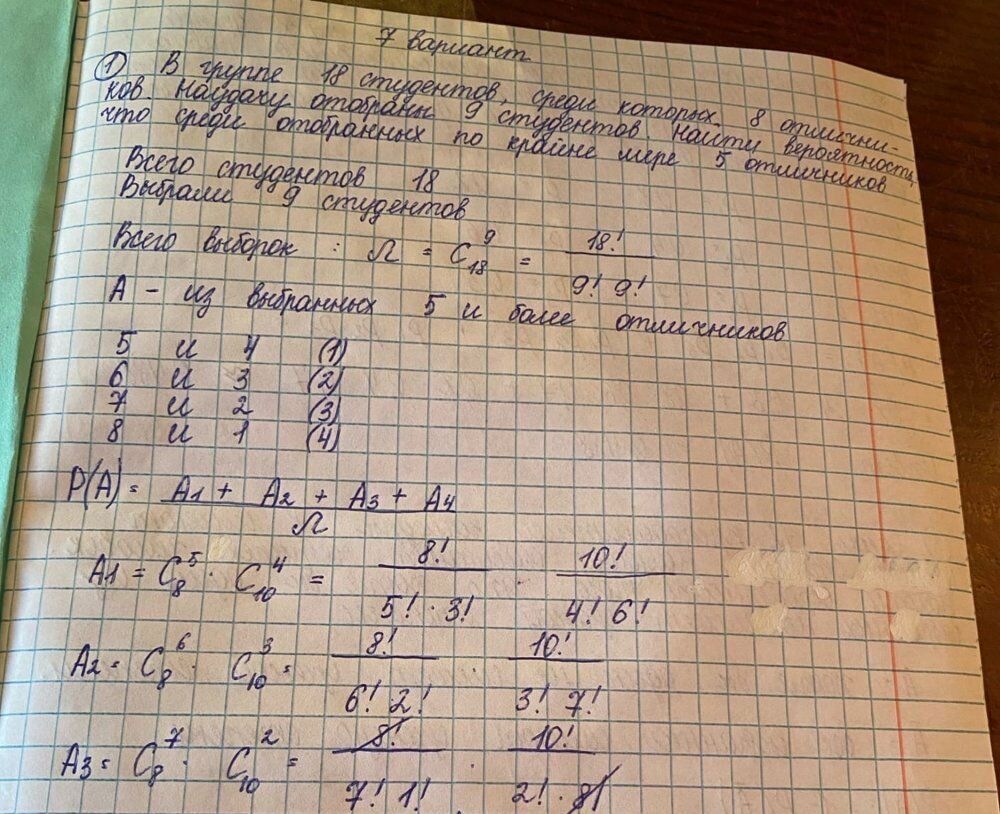 7 вариант
① В группе 18 студентов, среди которых 8 отлични-
ков наудачу отобраны 9 студентов найти вероятность,
что среди отобранных по крайне мере 5 отличников
Всего студентов 18
Выбрали 9 студентов
Всего выборок : Ω = C₁₈⁹ = 18! / 9! 9!
A - из выбранных 5 и более отличников
5 и 4 (1)
6 и 3 (2)
7 и 2 (3)
8 и 1 (4)
P(A) = A1 + A2 + A3 + A4 / Ω
A1 = C₈⁵ · C₁₀⁴ = 8! / 5! · 3! · 10! / 4! 6!
A2 = C₈⁶ · C₁₀³ = 8! / 6! 2! · 10! / 3! 7!
A3 = C₈⁷ · C₁₀² = 8! / 7! 1! · 10! / 2! · 8!